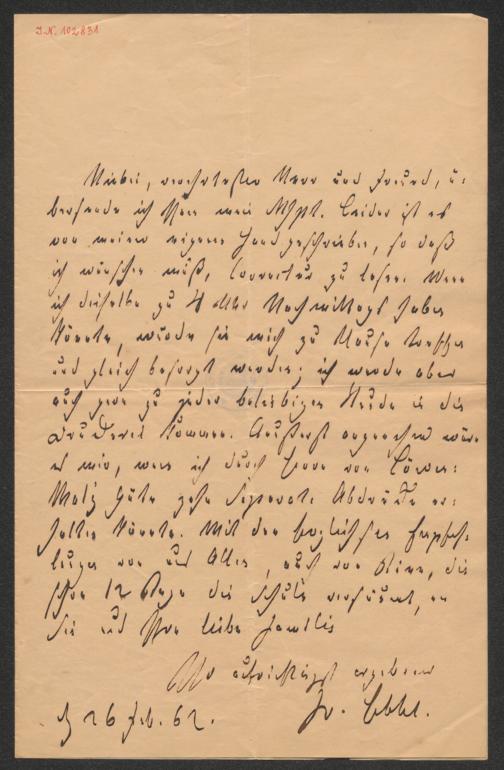 I.N. 102831
Hiebei, verehrtester Herr und Freund, ü-
bersende ich Ihnen mein Mspt. Leider ist es
von meiner eigenen Hand geschrieben, so daß
ich wünschen muß, Correctur zu lesen. Wenn
ich dieselbe zu 4 Uhr Nachmittags haben
könnte, würde sie mich zu Hause treffen
und gleich besorgt werden; ich werde aber
auch gern zu jeder beliebigen Stunde in die
Druckerei kommen. Äußerst angenehm wäre
es mir, wenn ich durch Herrn von
Güte zehn Separat-Abdrücke er-
halten könnte. Mit den herzlichsten Empfeh-
lungen von uns Allen, auch von, die
schon 12 Tage die Schule versäumt, an
Sie und Ihre liebe Familie
Ihr aufrichtigst ergebener
26 Feb. 62. Fr. Hebbel.